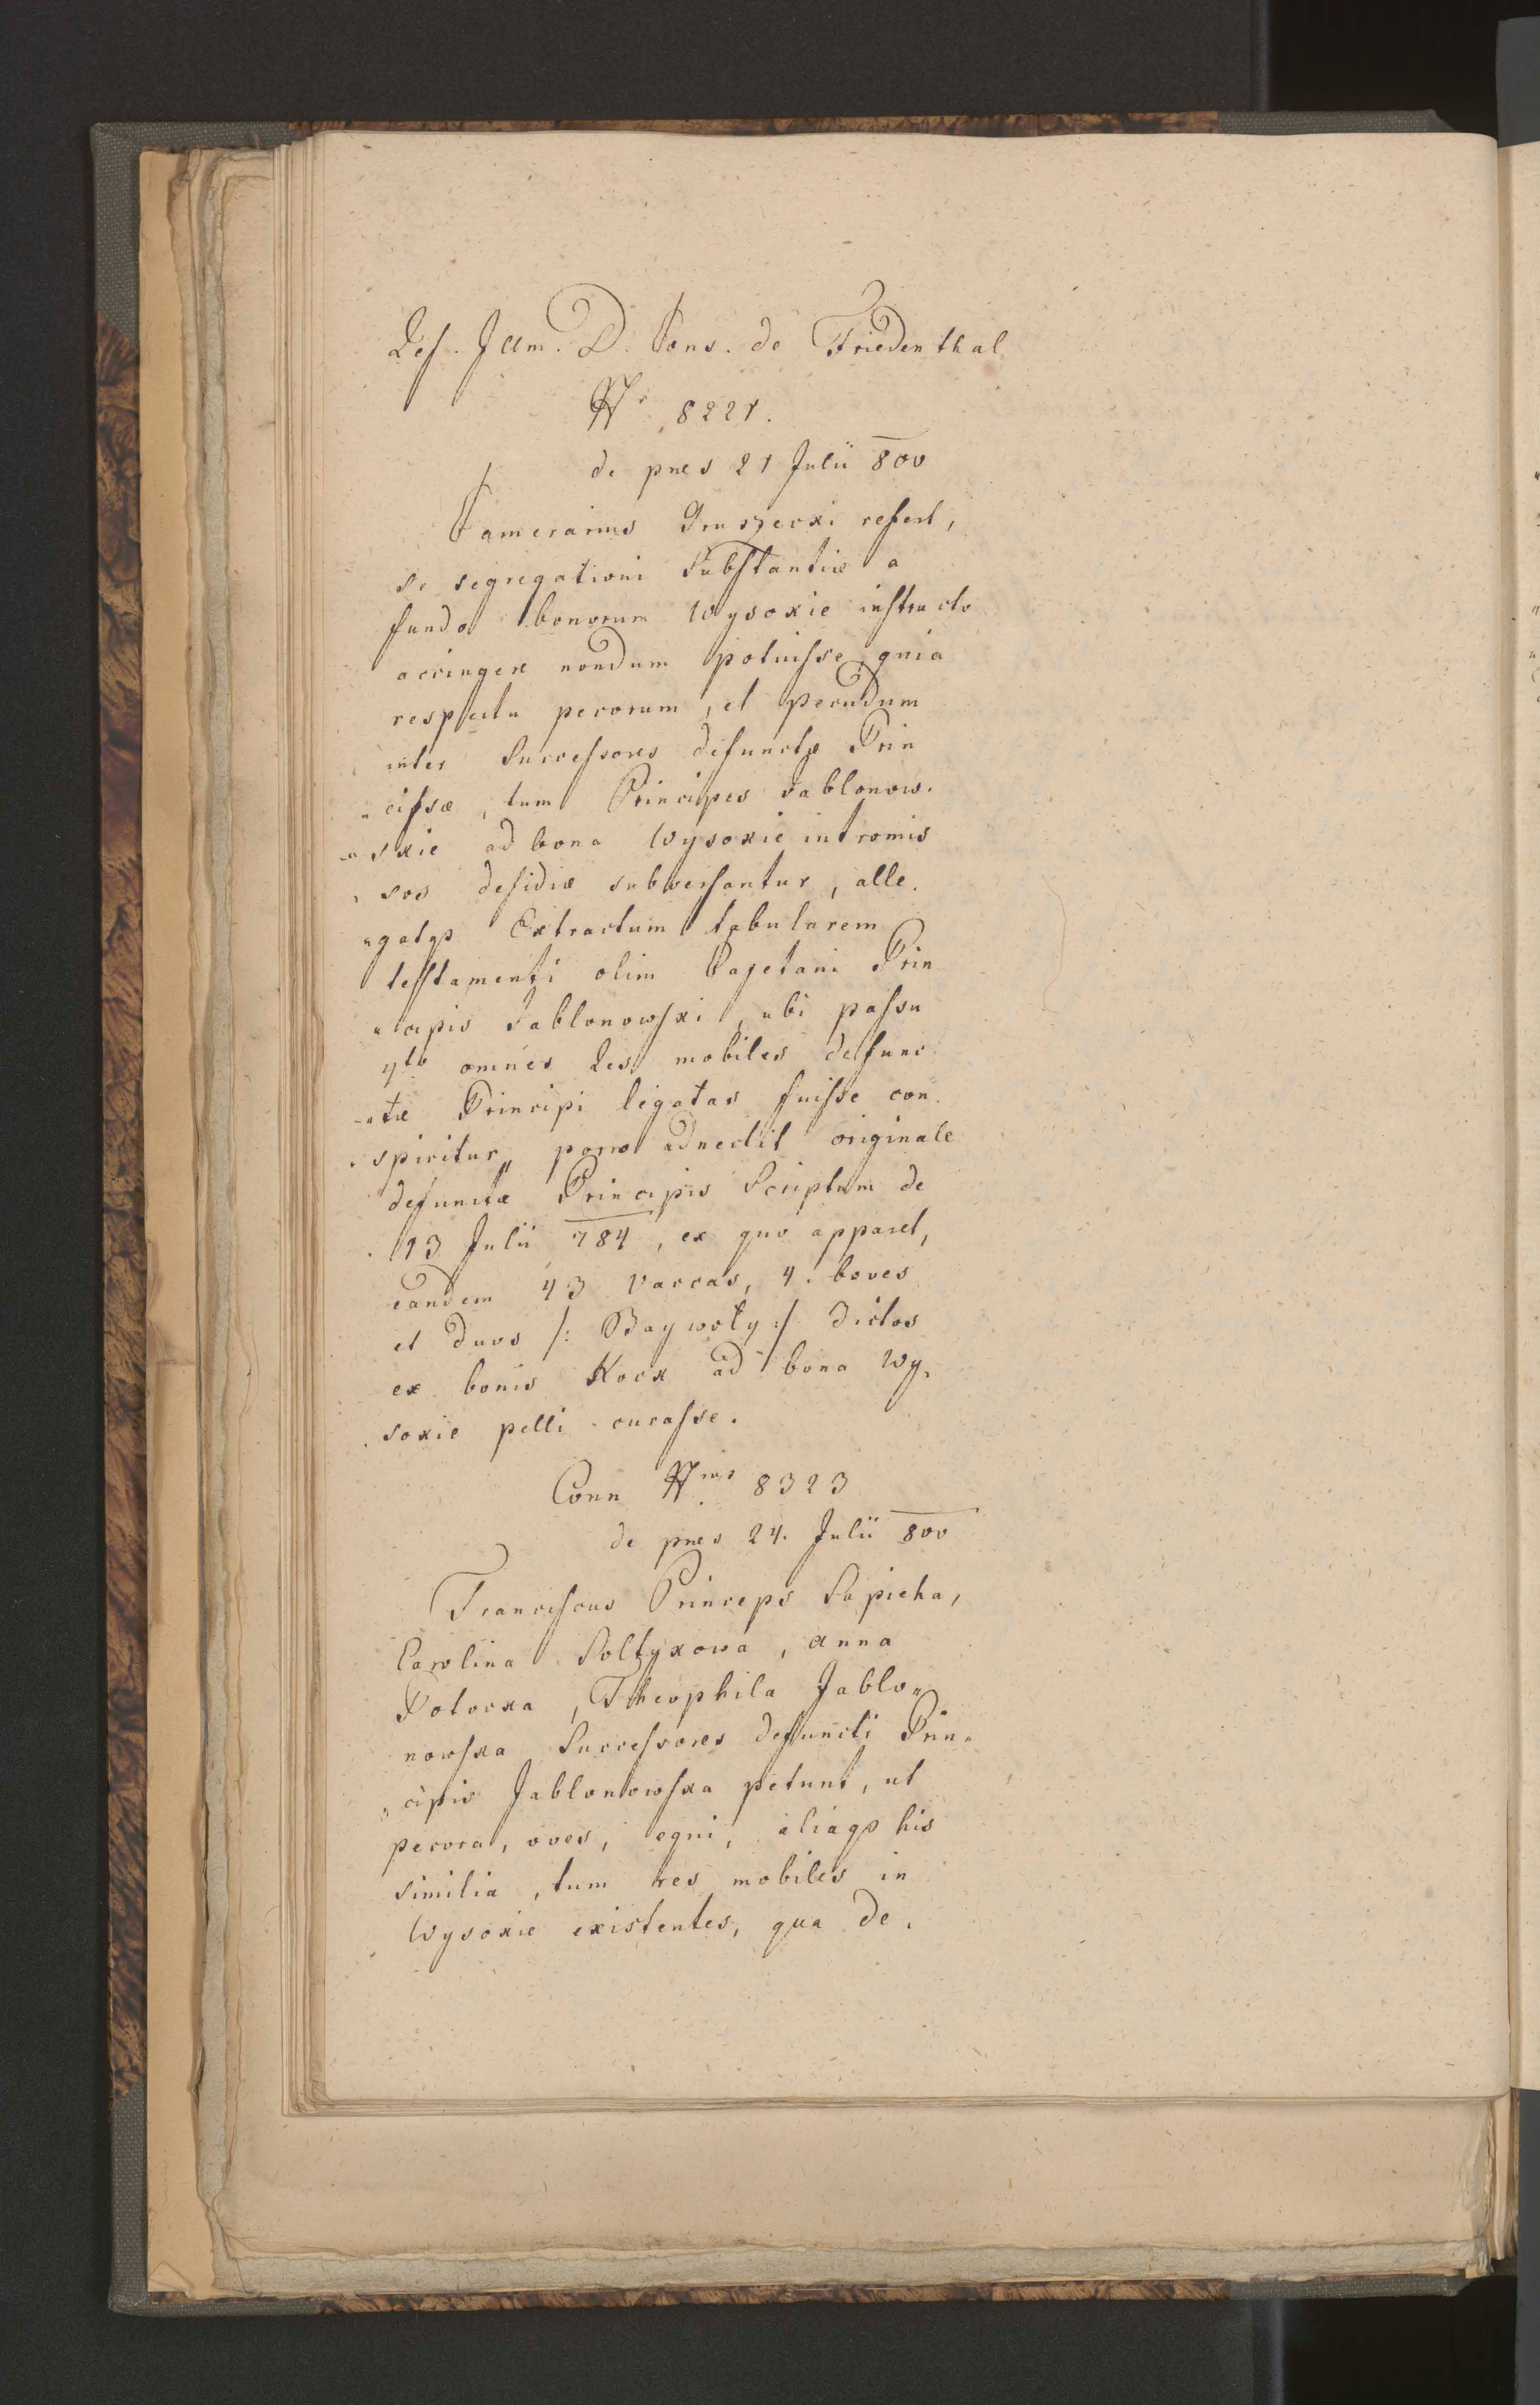 Ref. Illm. D. Cons. de Friedenthal
Nr 8221.
de pnes 21 Julii 800
Camerarius Gruszecki refert,
se segregationi Substantiæ a
fundo bonorum Wysokie instructo
accingere nondum potuisse, quia
respectu pecorum, et pecudum
inter Successores defunctæ Prin
„cipsæ, tum Principes Jablonow.
„skie ad bona Wysokie intromis
„sos desidiæ subversantur, alle.
„gatqs Extractum tabularem
testamenti olim Cajetani Prin
„cipis Jablonowski, ubi passu
4to omnes Res mobiles defunc
„tæ Principi legatas fuisse con
„spicitur„ porro adnectit originale
defunctæ Principis Scriptum de
13 Julii 784, ex quo apparet,
eandem 43 vaccas, 4. boves
et duos /: Baywoły :/ dictos
ex bonis Kock ad bona Wy„
sokie pelli curasse.
Conn Nrus 8323
de pnes 24. Julii 800
Franciscus Princeps Sapieha,
Carolina Soltykowa, Anna
Potocka, Theophila Jablo„
nowska Successores defuncti Prin„
„cipis Jablonowska petunt, ut
pecora, oves, equi, aliaqs his
similia, tum res mobiles in
Wysokie existentes, qua de„